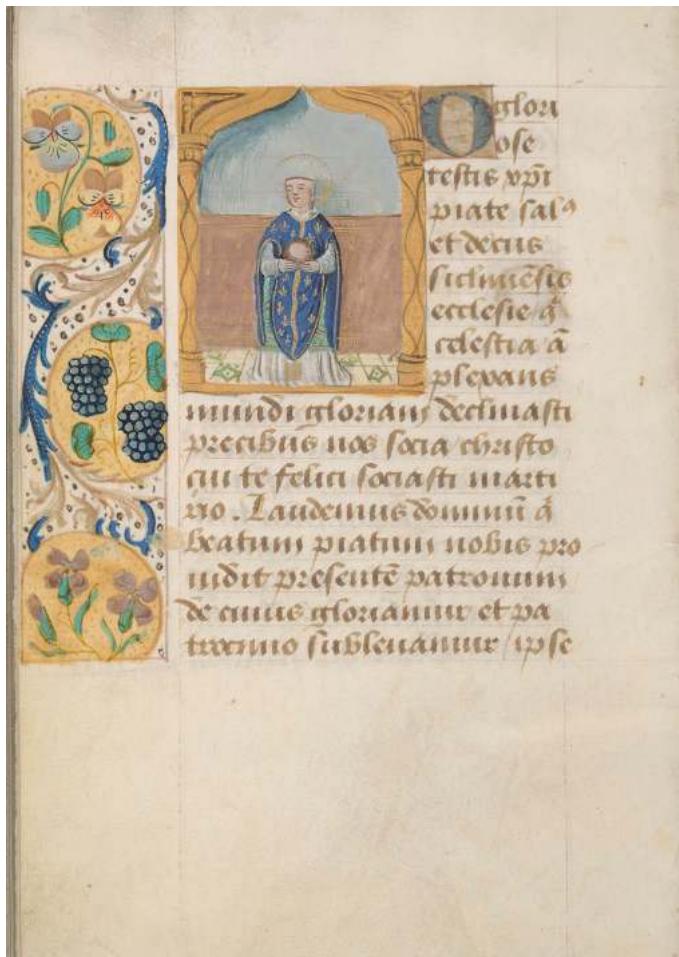 O glori
ose
testis xp̄i
piate salꝰ
et decus
sicliniēsis
ecclesie q̄
celestia ā
plexans
mundi gloriam declinasti
precibus nos socia christo
cui te felici sociasti marti
rio. Laudemus dominū q̄
beatum piatum nobis pro
uidit presentē patronum
de cuius gloriamur et pa
trocinio subleuamur / ipse